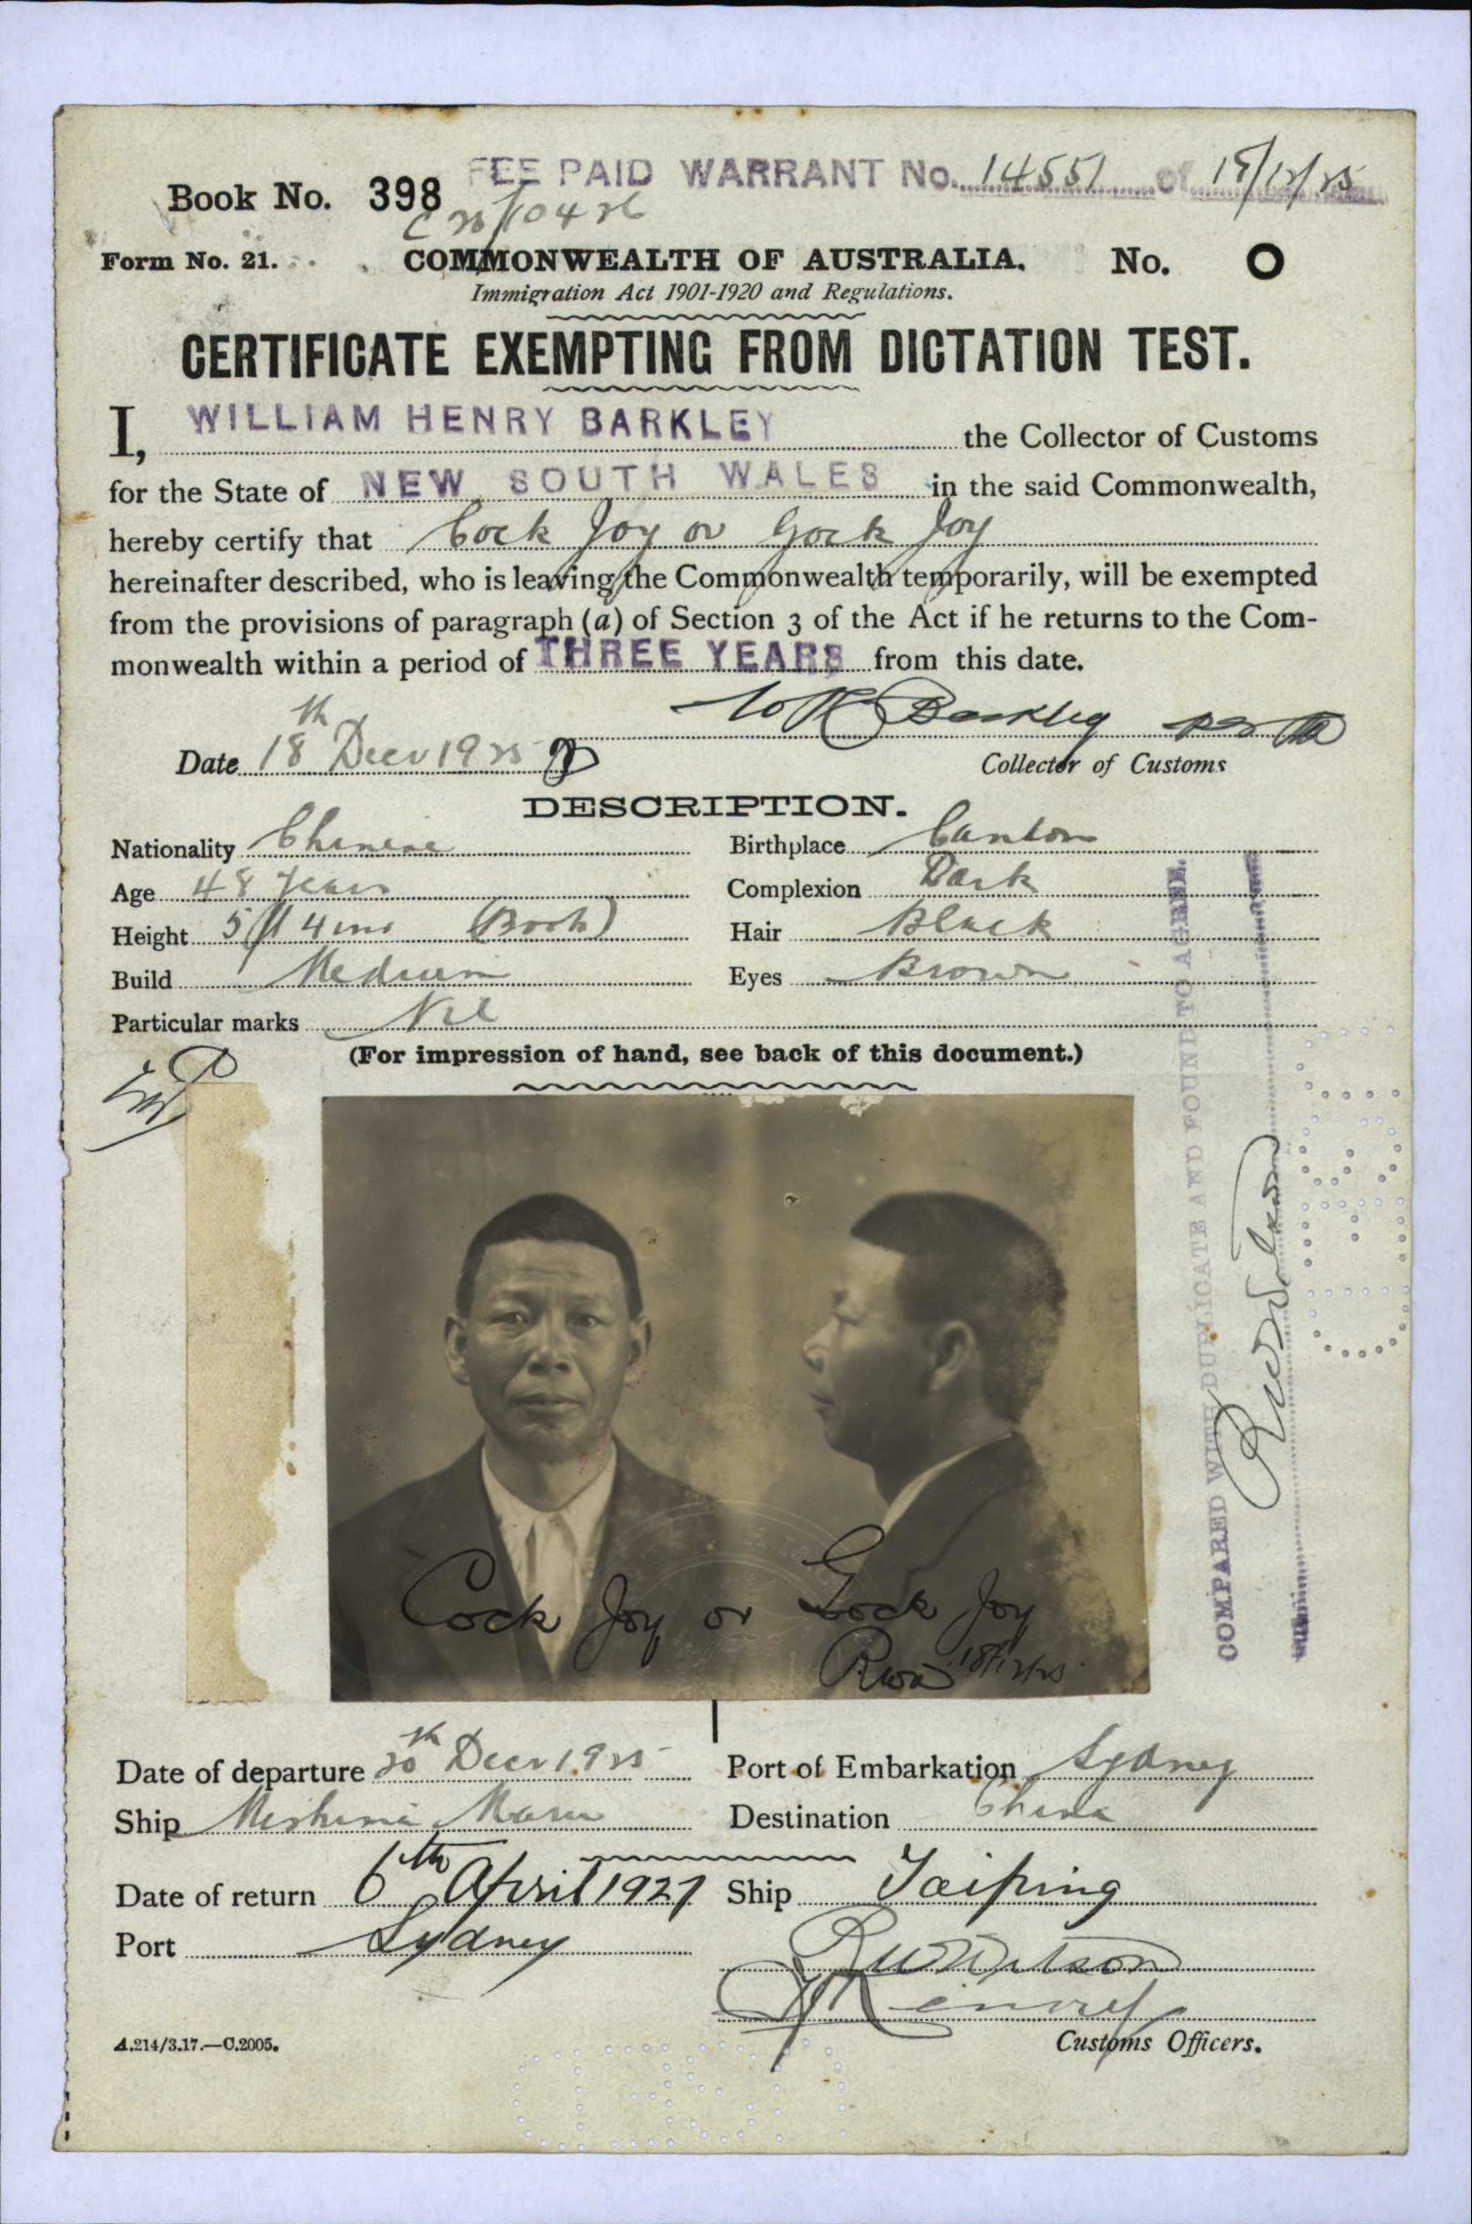 FEE PAID WARRANT No. 14551 of 18/12/25
Book No. 398
C25/10426
Form No. 21. COMMONWEALTH OF AUSTRALIA. No. O
Immigration Act 1901-1920 and Regulations.
CERTIFICATE EXEMPTING FROM DICTATION TEST.
I, WILLIAM HENRY BARKLEY the Collector of Customs
for the State of NEW SOUTH WALES in the said Commonwealth,
hereby certify that Cock Joy or Gock Joy
hereinafter described, who is leaving the Commonwealth temporarily, will be exempted
from the provisions of paragraph (a) of Section 3 of the Act if he returns to the Com-
monwealth within a period of THREE YEARS from this date.
W H Barkley
Date 18th Decr 1925
Collector of Customs
DESCRIPTION.
Nationality Chinese Birthplace Canton
Age 48 years Complexion Dark
Height 5 ft 4 ins (Boots) Hair Black
Build Medium Eyes Brown
Particular marks Nil
(For impression of hand, see back of this document.)
COMPARED WITH DUPLICATE AND FOUND TO AGREE.
Cock Joy or Gock Joy
18/12/25
Date of departure 20th Decr 1925 Port of Embarkation Sydney
Ship Mishima Maru Destination China
Date of return 6th April 1927 Ship Taiping
Port Sydney
Customs Officers.
A.214/3.17.—C.2005.